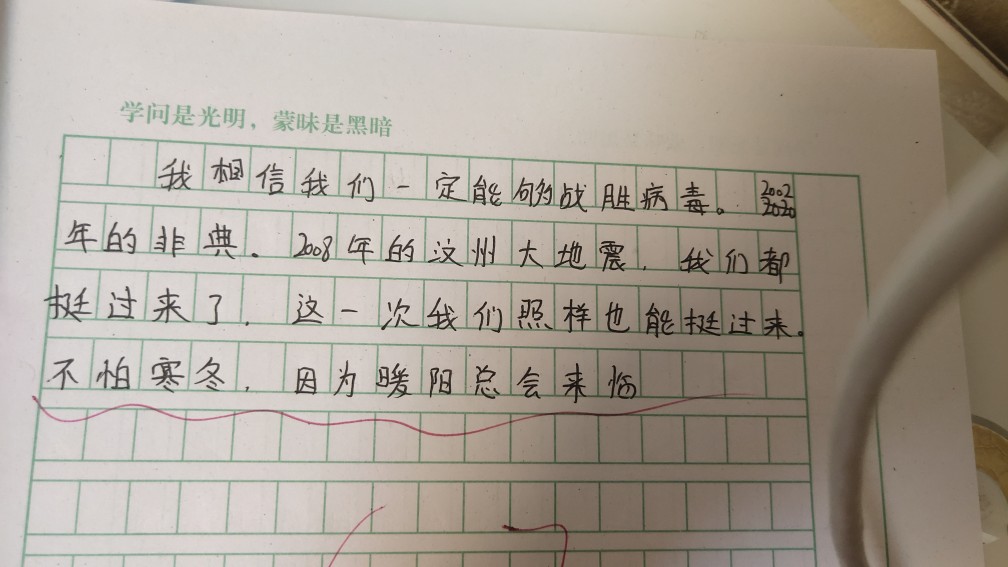 学问是光明，蒙昧是黑暗
我相信我们一定能够战胜病毒。2002
2020
年的非典。2008年的汶州大地震，我们都
挺过来了，这一次我们照样也能挺过来。
不怕寒冬，因为暖阳总会来临